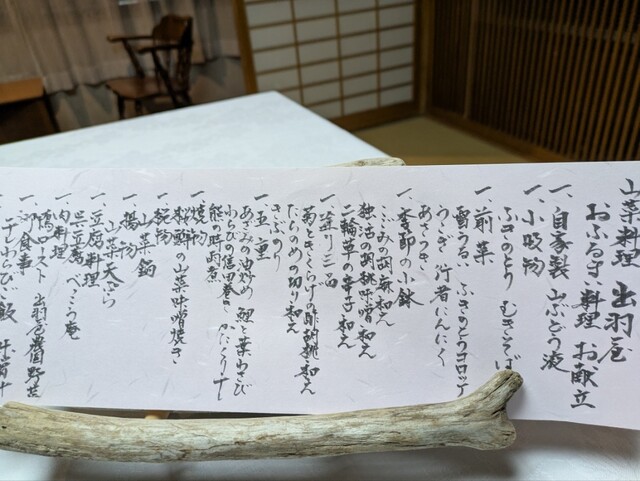 山菜料理 出羽屋
おふるまい料理 お献立
一、自家製 山ぶどう液
一、小吸物
ふきのとり むきそば
一、前菜
雪うるい ふきのとうコロッケ
うこぎ 行者にんにく
あさつき
一、季節の小鉢
こごみの胡麻和え
独活の胡桃味噌和え
二輪草の辛子和え
一、盛り三品
菊ときくらげ酢胡桃和え
たらのめの切り和え
きぶのり
一、玉重
あざみの油炒め 鯉と葉わさび
わらびの信田巻き かたくり
熊の時雨煮
一、焼物
桜鱒の山菜味噌焼き
一、鍋物
山菜鍋
一、揚物
山菜天ぷら
一、豆腐料理
呉豆腐 べっこう庵
一、肉料理
鴨ロースト 出羽屋農園野菜
一、御食事
干しわらび飯